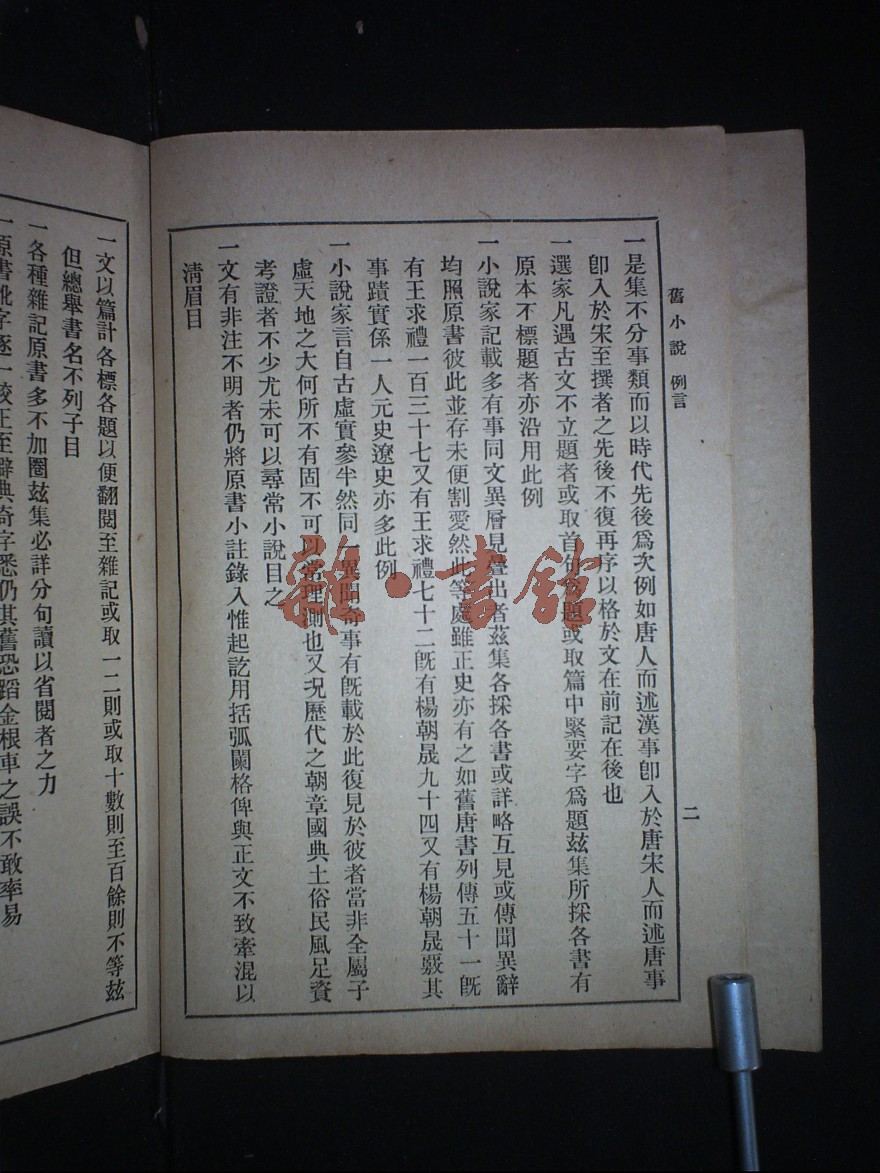 舊小說 例言
二
一是集不分事類而以時代先後爲次例如唐人而述漢事卽入於唐宋人而述唐事
卽入於宋至撰者之先後不復再序以格於文在前記在後也
一選家凡遇古文不立題者或取首句爲題或取篇中緊要字爲題玆集所採各書有
原本不標題者亦沿用此例
一小說家記載多有事同文異層見疊出者茲集各採各書或詳略互見或傳聞異辭
均照原書彼此並存未便割愛然此等處雖正史亦有之如舊唐書列傳五十一旣
有王求禮一百三十七又有王求禮七十二旣有楊朝晟九十四又有楊朝晟覈其
事蹟實係一人元史遼史亦多此例
一小說家言自古虛實參半然同一異聞奇事有旣載於此復見於彼者當非全屬子
虛天地之大何所不有固不可以常理測也又況歷代之朝章國典土俗民風足資
考證者不少尤未可以尋常小說目之
一文有非注不明者仍將原書小註錄入惟起訖用括弧闌格俾與正文不致牽混以
淸眉目
一文以篇計各標各題以便翻閱至雜記或取一二則或取十數則至百餘則不等玆
但總舉書名不列子目
一各種雜記原書多不加圈玆集必詳分句讀以省閱者之力
一原書訛字逐一校正至辭典奇字悉仍其舊恐蹈金根車之誤不敢率易
雜·書館